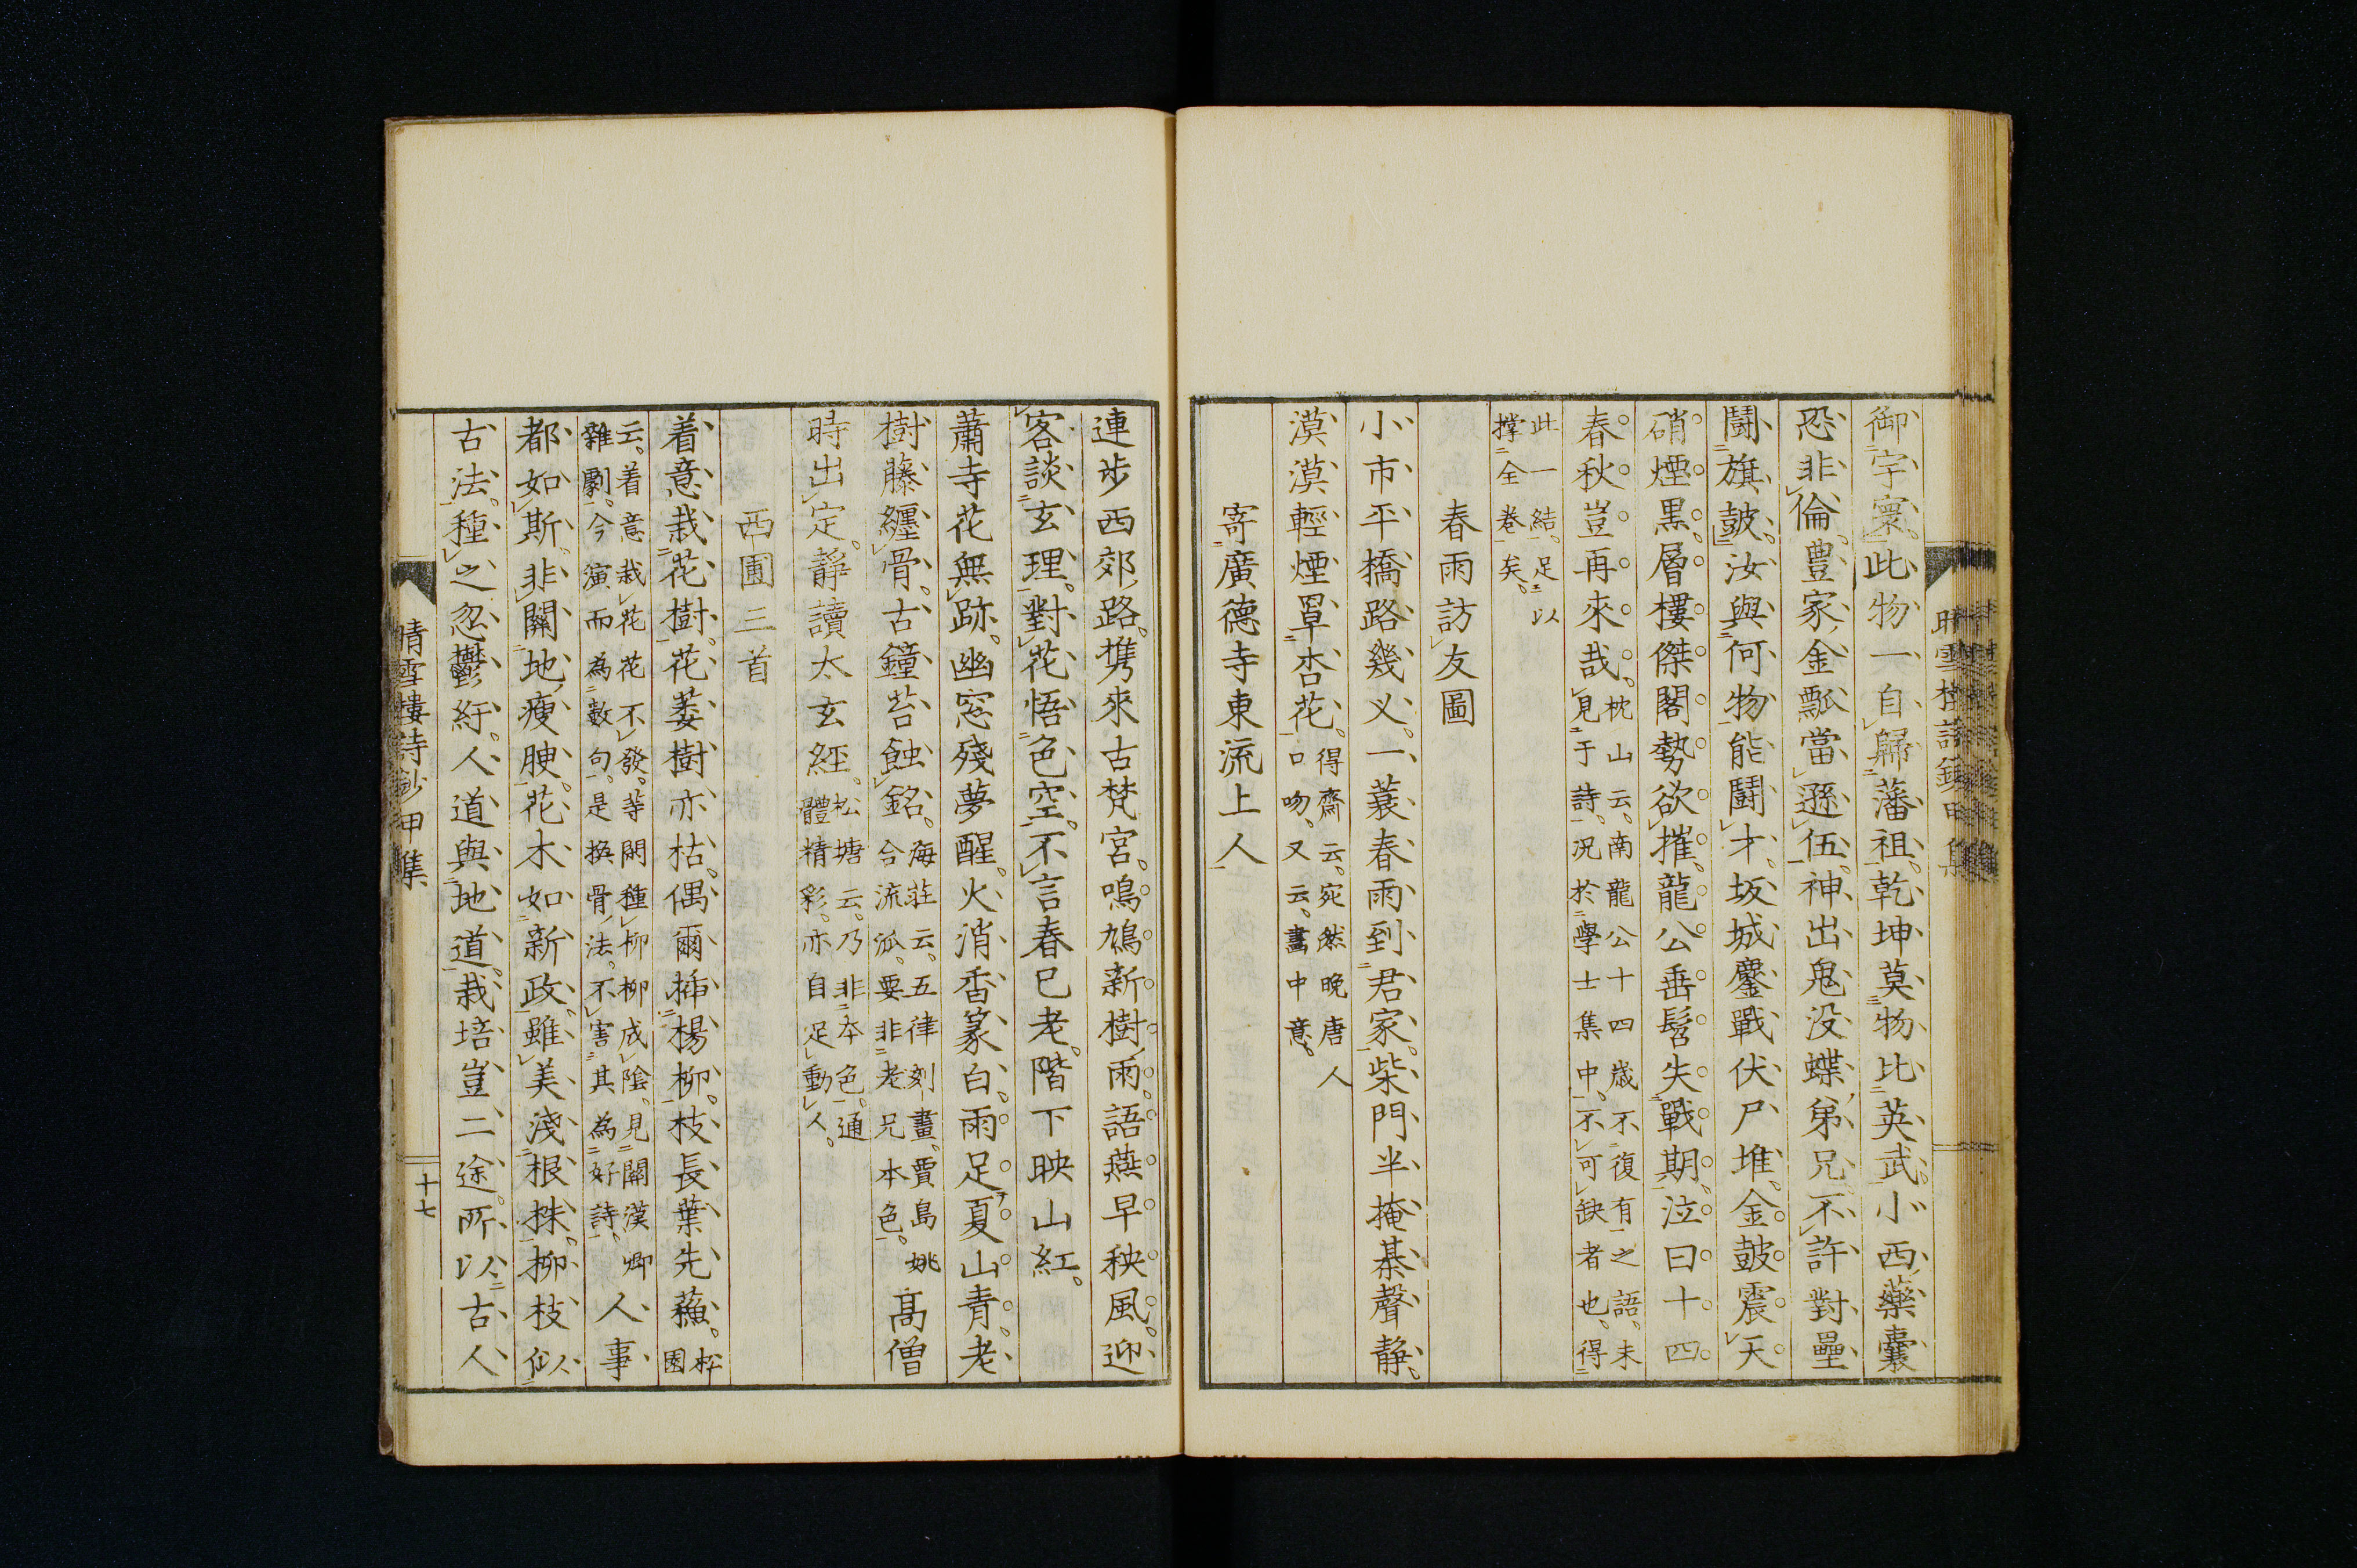 御宇寰此物一自歸藩祖乾坤莫物比英武小西藥囊
恐非倫豊家金瓢當遜伍神出鬼没蝶弟兄不許對壘
鬪旗皷汝與何物能鬪才坂城鏖戰伏尸堆金皷震天
硝煙黒層樓傑閣勢欲摧龍公垂髫失戰期泣曰十四
春秋豈再來哉枕山云南龍公十四歳不復有之語未
見于詩況於學士集中不可缺者也得
此一結足以
撑全卷矣
春雨訪友圖
小市平橋路幾乂一蓑春雨到君家柴門半掩棊聲静
漠漠輕煙罩杏花得齋云宛然晩唐人
口吻又云畫中意
寄廣德寺東流上人
連歩西郊路携來古梵宮鳴鳩新樹雨語燕早秧風迎
客談玄理對花悟色空不言春已老階下映山紅
蕭寺花無跡幽窓殘夢醒火消香篆白雨足夏山青老
樹藤纒骨古鐘苔蝕銘海荘云五律刻畫賈島姚
合流派要非老兄本色髙僧
時出定靜讀太玄経松塘云乃非本色通
體精彩亦自足動人
西圃三首
着意栽花樹花萎樹亦枯偶爾挿楊柳枝長葉先蘓松
園
云着意栽花花不發等閑種柳柳成陰見關漢卿
雜劇今演而為數句是換骨法不害其為好詩人事
都如斯非關地瘦腴花木如新政雖美淺根株柳枝似
古法種之忽鬱紆人道與地道栽培豈二途所以古人
晴雪樓詩鈔甲集
十七